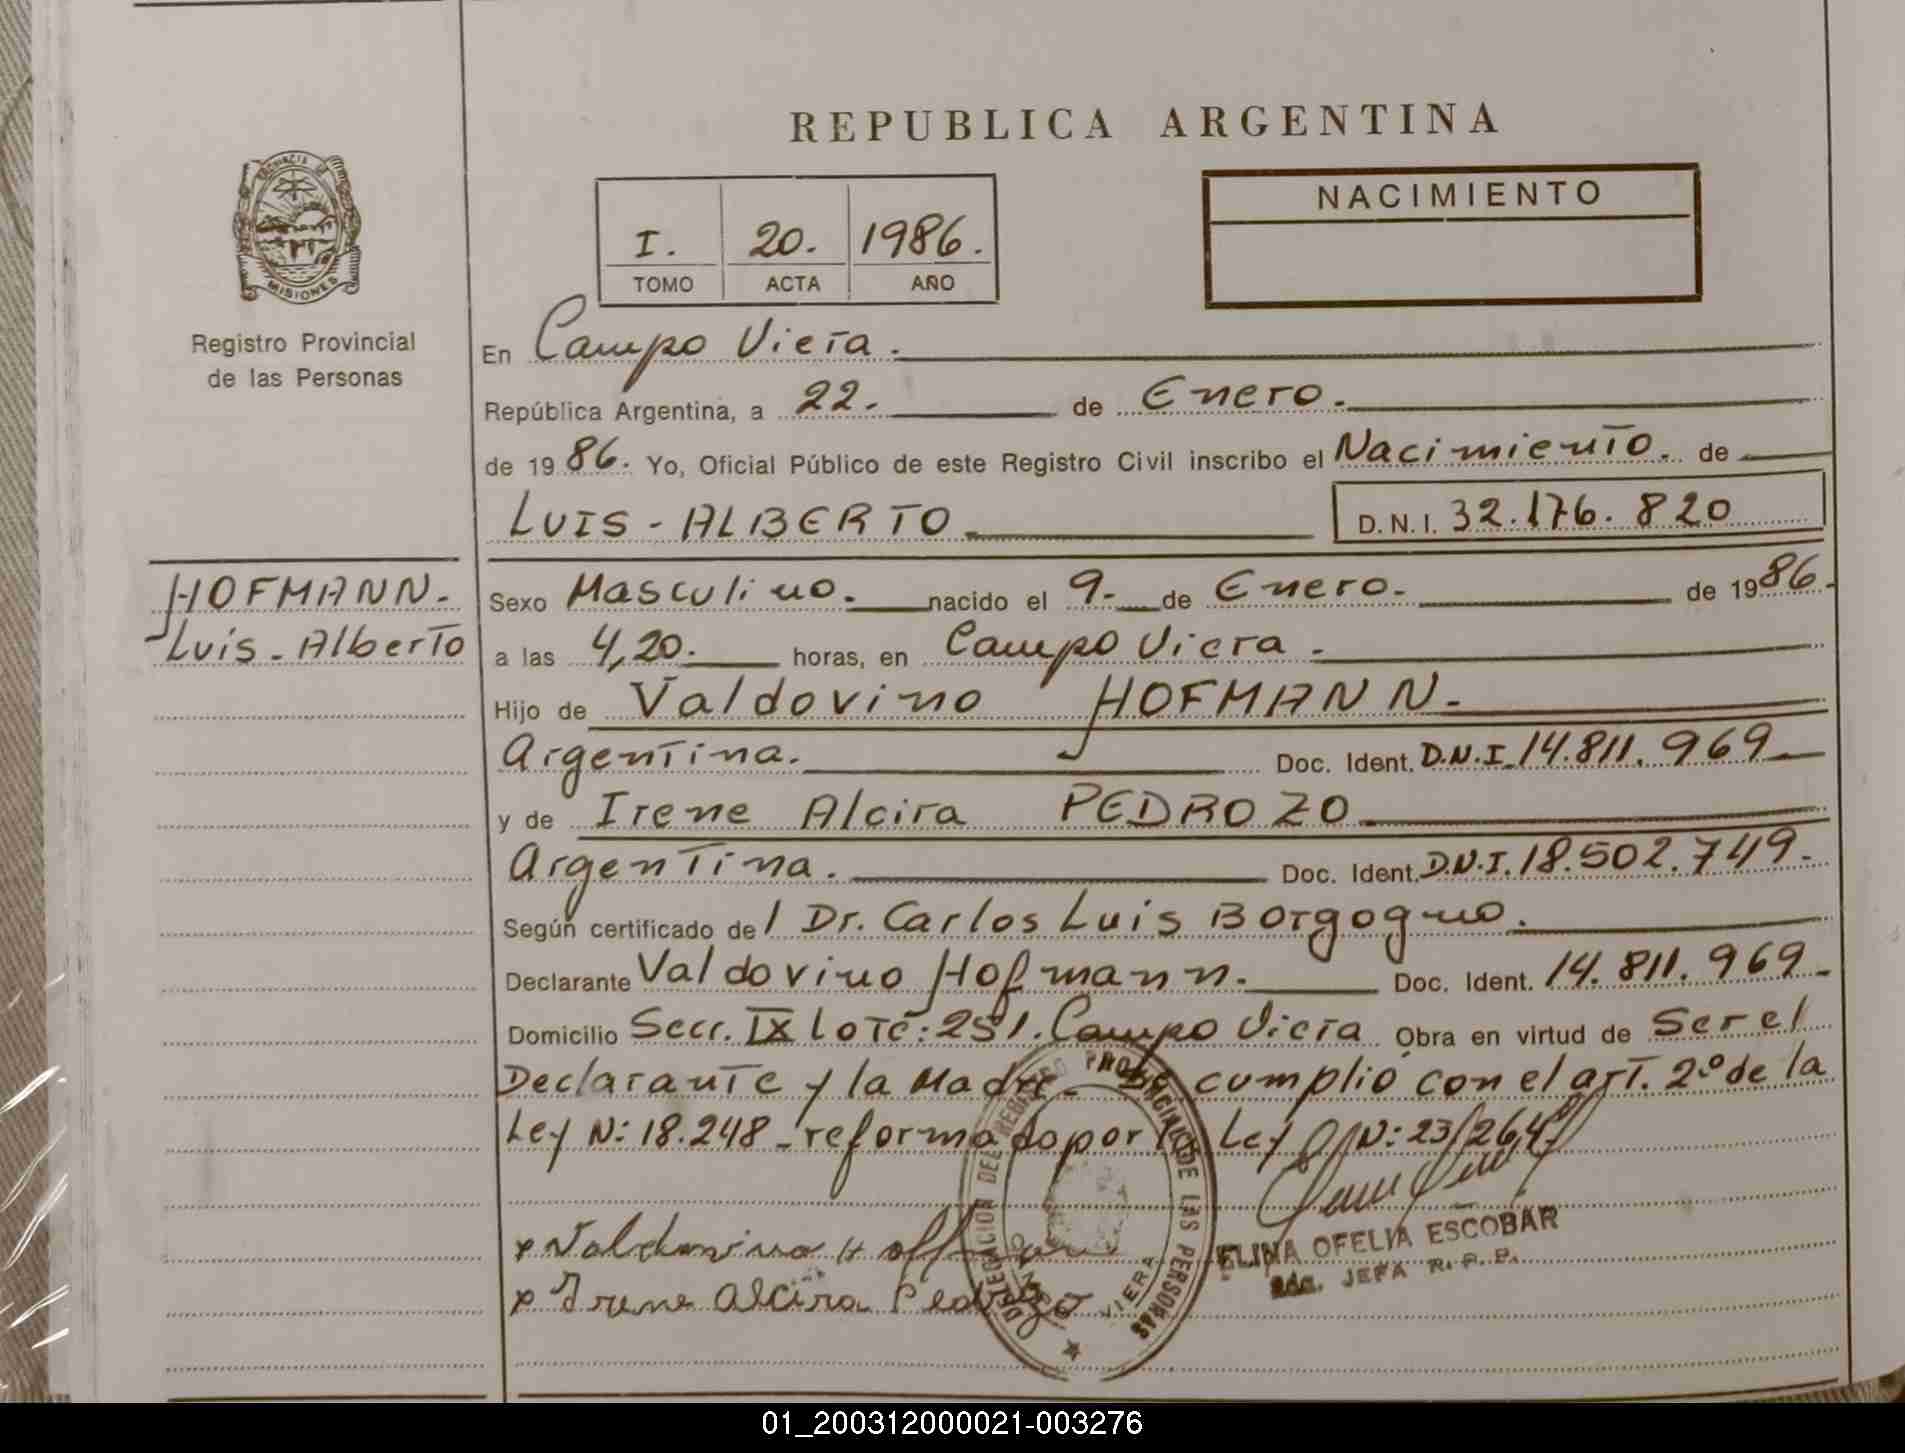 REPUBLICA ARGENTINA
PROVINCIA DE MISIONES
Registro Provincial
de las Personas
I. 20. 1986.
TOMO ACTA AÑO
NACIMIENTO
En Campo Viera.
República Argentina, a 22. de Enero.
de 1986. Yo, Oficial Público de este Registro Civil inscribo el Nacimiento. de
LUIS-ALBERTO D.N.I. 32.176.820
HOFMANN.
Luis-Alberto
Sexo Masculino. nacido el 9. de Enero. de 1986.
a las 4,20. horas, en Campo Viera.
Hijo de Valdovino HOFMANN.
Argentina. Doc. Ident. D.N.I. 14.811.969
y de Irene Alcira PEDROZO
Argentina. Doc. Ident. D.N.I. 18.502.749.
Según certificado de l Dr. Carlos Luis Borgogno.
Declarante Valdovino Hofmann. Doc. Ident. 14.811.969
Domicilio Secc. IX lote: 251. Campo Viera Obra en virtud de Ser el
Declarante y la Madre Se cumplió con el art. 2º de la
Ley N: 18.248-reformado por la Ley N: 23/264.
x Valdovino Hoffmann
x Irene Alcira Pedrozo
DELEGACION DEL REGISTRO PROVINCIAL DE LAS PERSONAS
CAMPO VIERA
ELINA OFELIA ESCOBAR
2da. JEFA R.P.P.
01_200312000021-003276